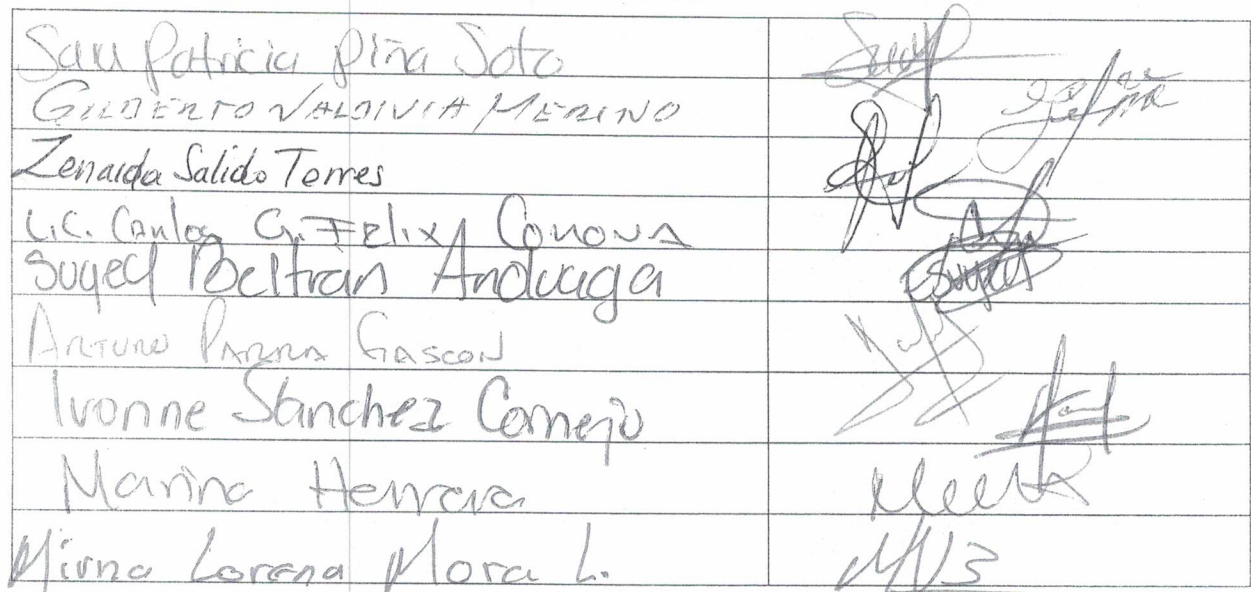 Patricia Piña Soto
GILBERTO VALDIVIA MERINO
Zenaida Salido Torres
Lic. Carlos G. Felix Conova
Suyed
Suyey Beltran Anduaga
ARTURO PARRA GASCON
Ivonne Sánchez Cornejo
Marina Herrera
Mirna Lorena Mora L.